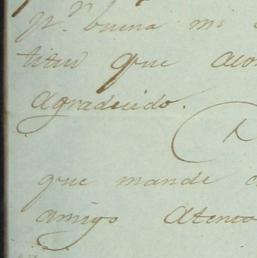 pr. buena mi
titud que aco
agradecido.
que mande
amigo Atento